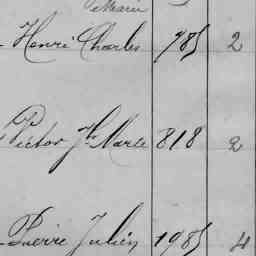 Henri Charles 785 2
Victor Jh Marie 818 2
Pierre Julien 1985 4